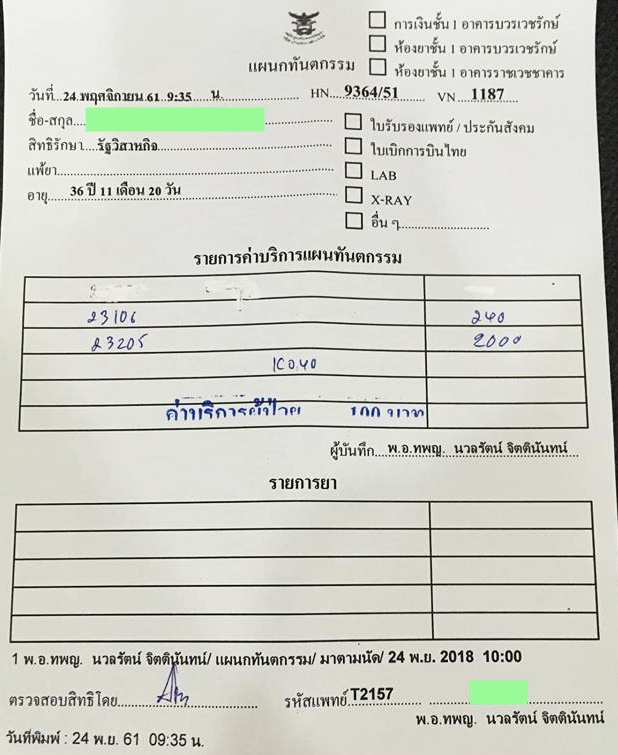 การเงินชั้น 1 อาคารบวรเวชรักษ์
ห้องยาชั้น 1 อาคารบวรเวชรักษ์
แผนกทันตกรรม ห้องยาชั้น 1 อาคารราชเวชชาคาร
วันที่ 24 พฤศจิกายน 61 9:35 น. HN 9364/51 VN 1187
ชื่อ-สกุล ใบรับรองแพทย์ / ประกันสังคม
สิทธิรักษา รัฐวิสาหกิจ ใบเบิกการบินไทย
แพ้ยา LAB
อายุ 36 ปี 11 เดือน 20 วัน X-RAY
อื่น ๆ
รายการค่าบริการแผนทันตกรรม
23106 240
23205 2000
ค่าบริการผู้ป่วย 100 บาท
ผู้บันทึก พ.อ.ทพญ. นวลรัตน์ จิตตินันทน์
รายการยา
1 พ.อ.ทพญ. นวลรัตน์ จิตตินันทน์/ แผนกทันตกรรม/ มาตามนัด/ 24 พ.ย. 2018 10:00
ตรวจสอบสิทธิโดย รหัสแพทย์ T2157
พ.อ.ทพญ. นวลรัตน์ จิตตินันทน์
วันที่พิมพ์ : 24 พ.ย. 61 09:35 น.